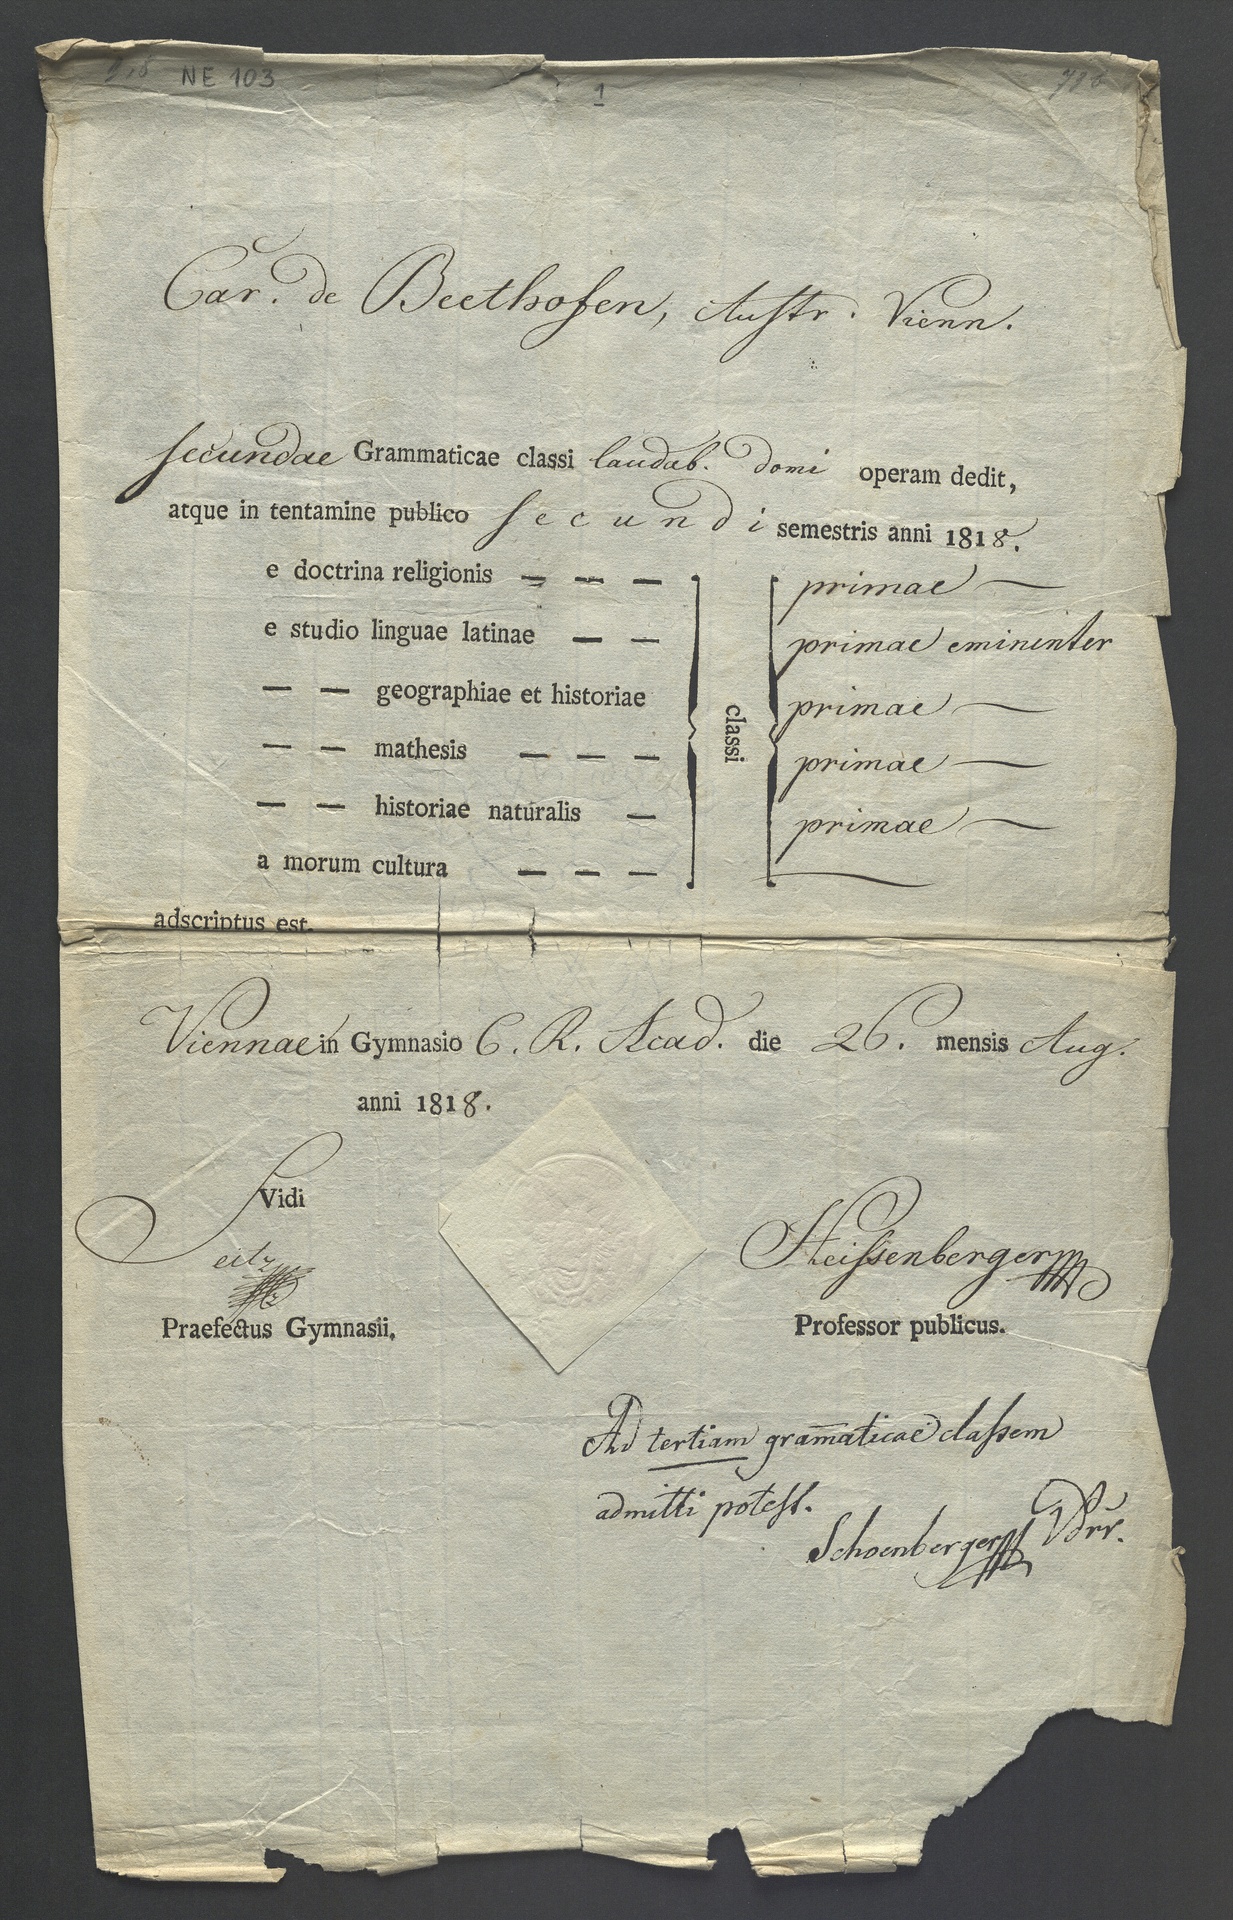 NE 103
1
Car. de Beethofen, Austr. Vienn.
secundae Grammaticae classi laudab. domi operam dedit,
atque in tentamine publico secundi semestris anni 1818.
e doctrina religionis — — — primae —
e studio linguae latinae — — primae eminenter
— — geographiae et historiae primae —
— — mathesis — — — primae —
— — historiae naturalis — primae —
a morum cultura — — — —
classi
adscriptus est.
Viennae in Gymnasio C. R. Acad. die 26. mensis Aug.
anni 1818.
Vidi
Seitz
Steissenberger
Praefectus Gymnasii.
Professor publicus.
Ad tertiam gram̄aticae classem
admitti potest.
Schoenberger